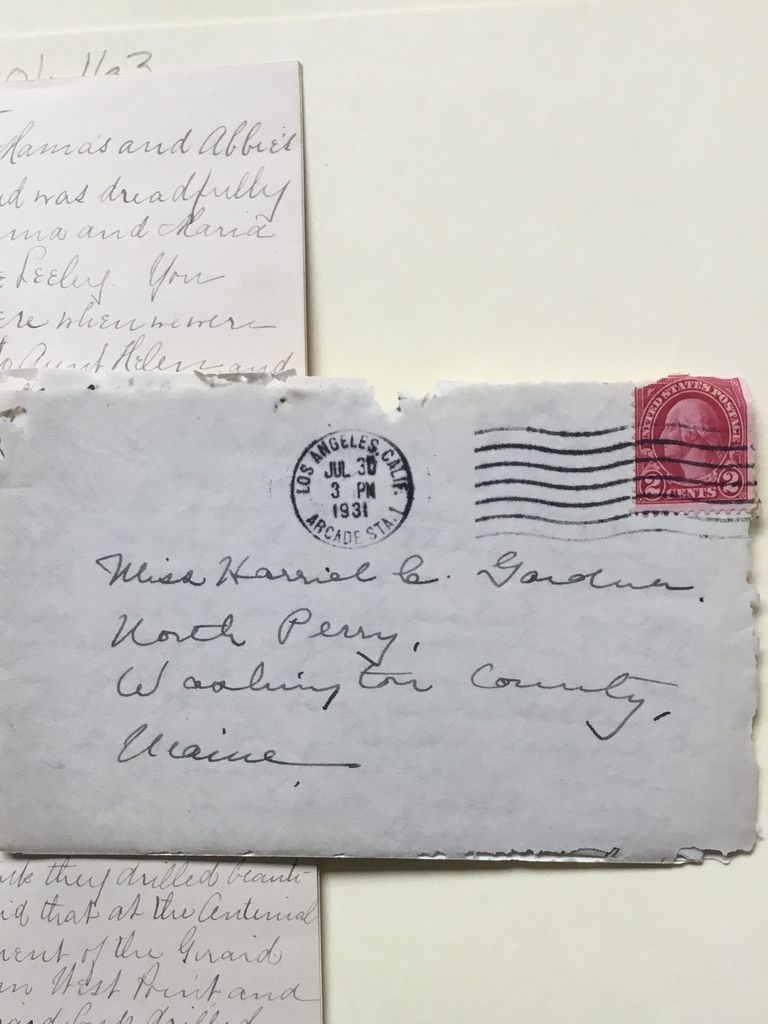 Mama's and Abbie's
was dreadfully
and Maria
Seeley. You
when we were
to Aunt Helen and
LOS ANGELES, CALIF.
JUL 30
3 PM
1931
ARCADE STA. 1
UNITED STATES POSTAGE
2 CENTS 2
Miss Harriet C. Gardner.
North Perry,
Washington County,
Maine
they drilled beauti-
that at the Centenial
of the Girard
West Point and
drilled